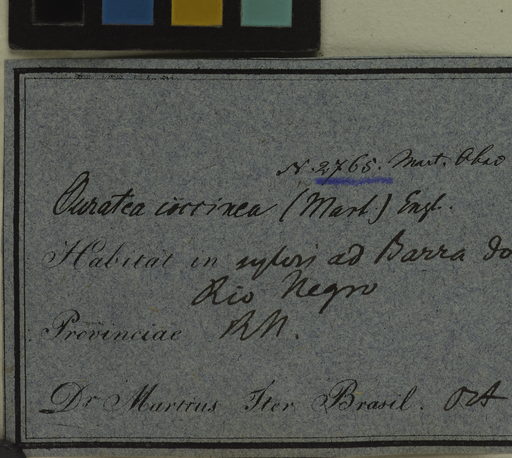 N. 2765. Mart. Obs
Ouratea coccinea (Mart.) Engl.
Habitat in sylvis ad Barra do
Rio Negro
Provinciae RN.
Dr Martius Iter Brasil. Oct